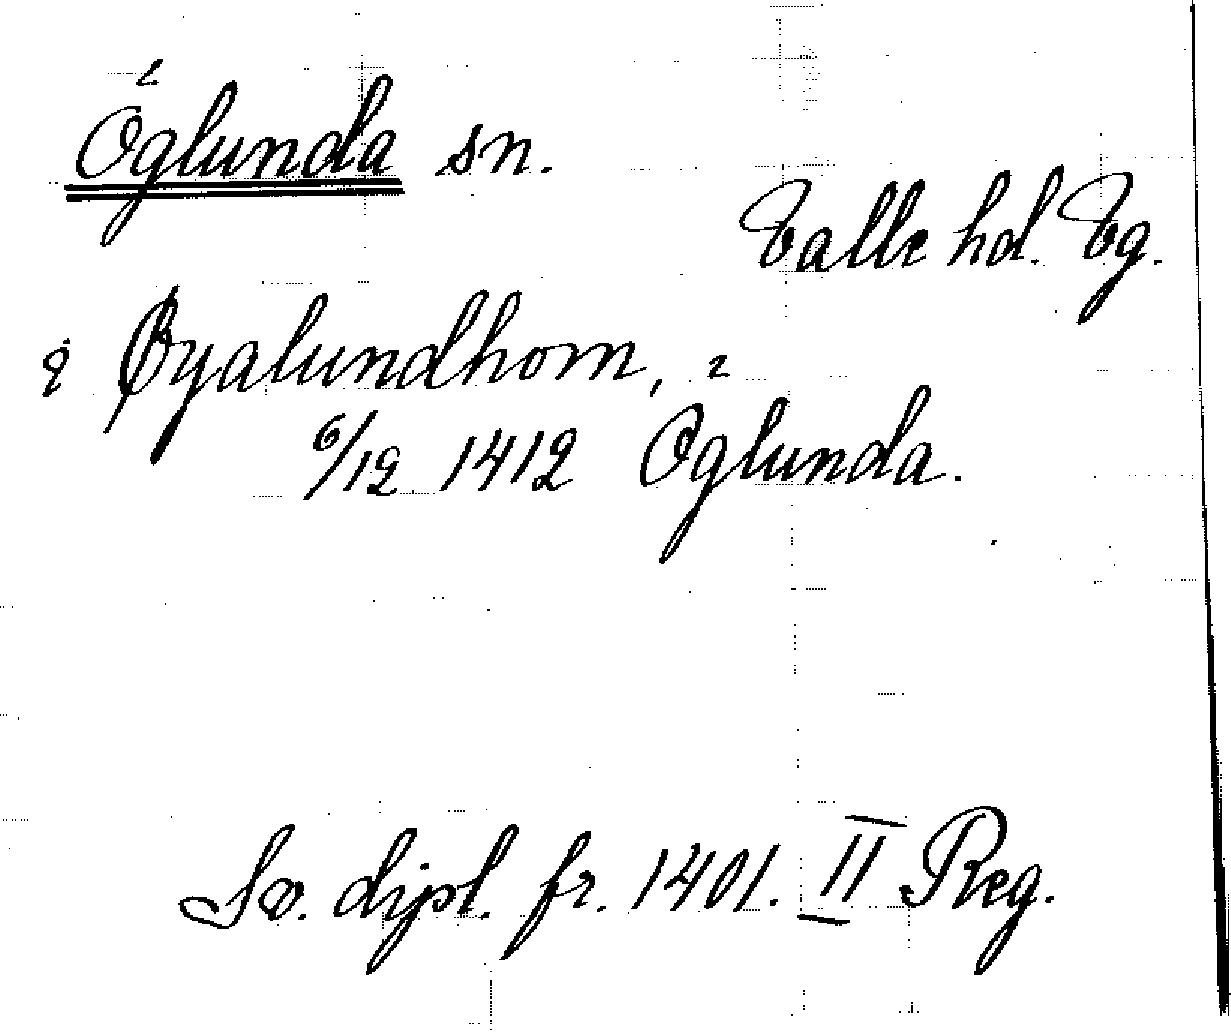 Öglunda sn.
Valle hd. Vg.
i Øyalundhom,
6/12 1412 Öglunda.
Sv. dipl. fr. 1401. II Reg.